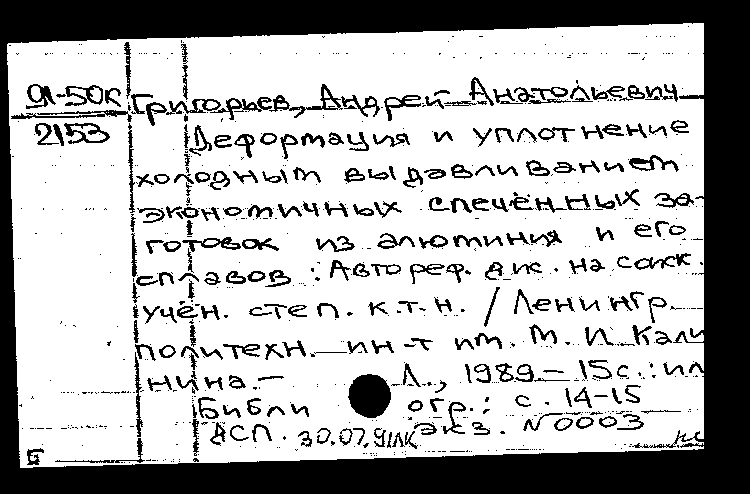 91-50К
2153
Григорьев, Андрей Анатольевич
Деформация и уплотнение
холодным выдавливанием
экономичных спечённых за-
готовок из алюминия и его
сплавов : Автореф. дис. на соиск.
учён. степ. к.т.н. / Ленингр.
политехн. ин-т им. М. И Кали
нина. —
Л., 1989 — 15с. : ил
Библи огр.: с. 14-15
ДСП. 30.07.91 экз. N 0003
Б